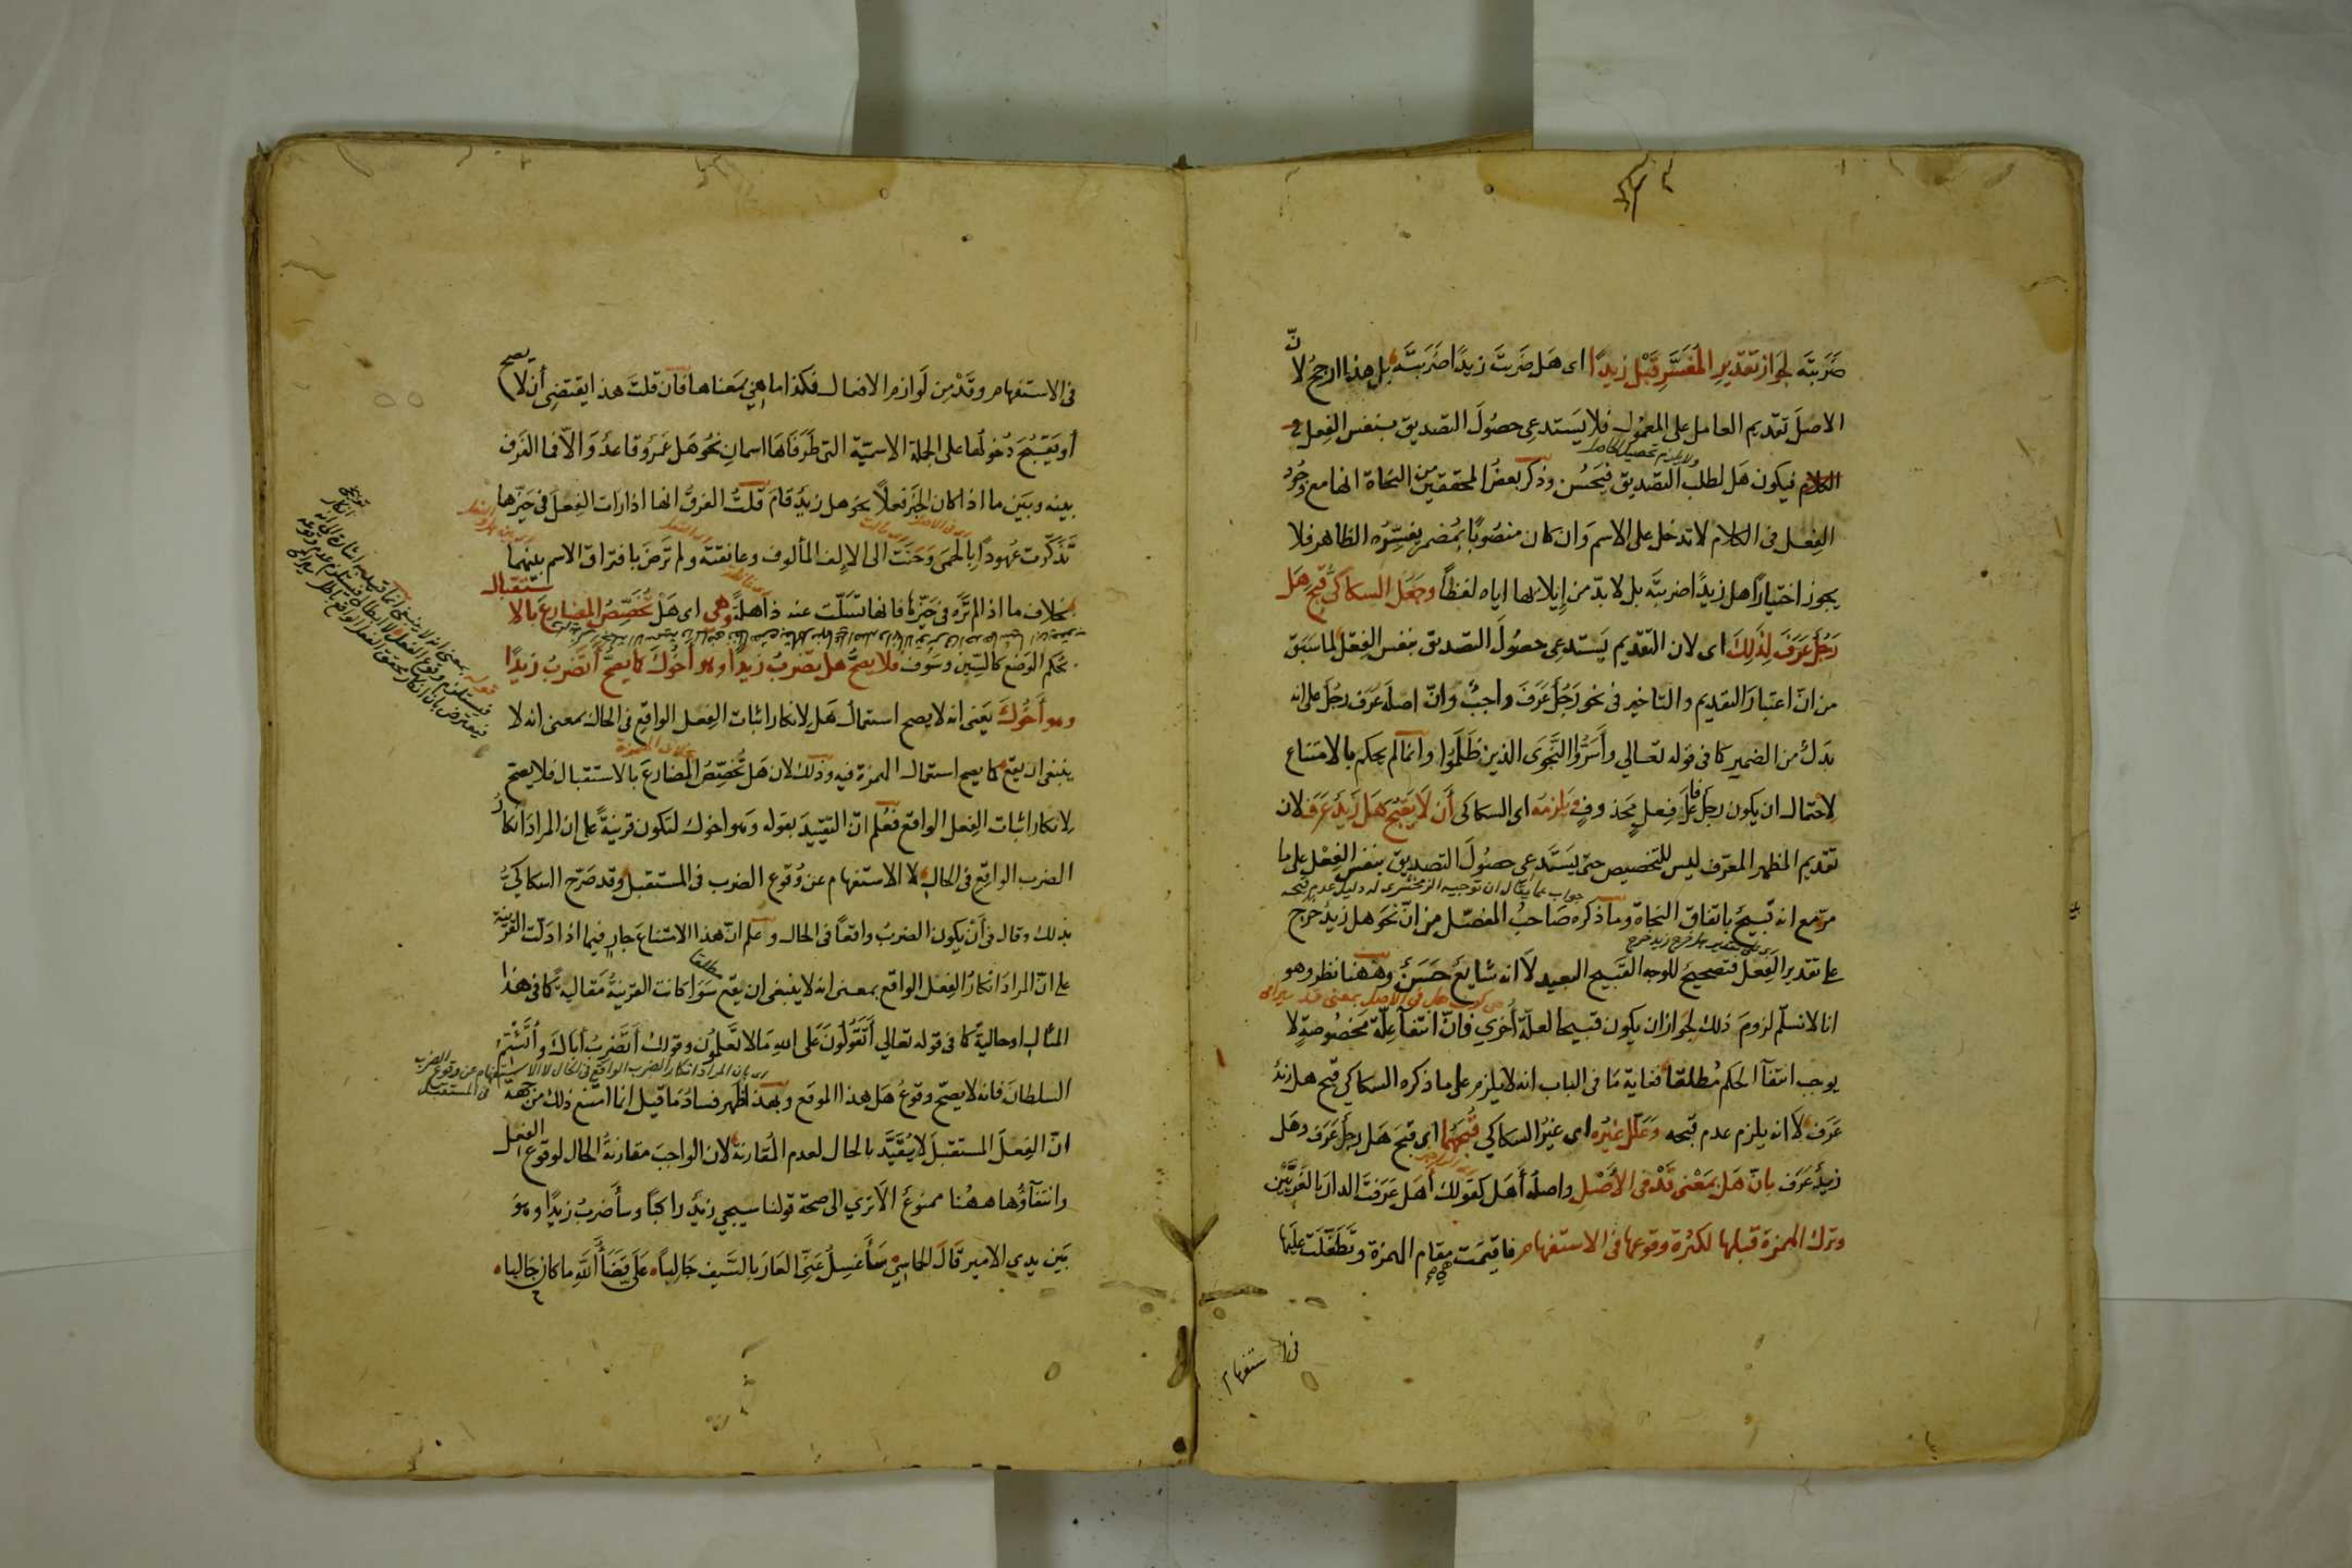 ضَرَبْتَه لجواز تقدير المفسَّر قبل زيدًا اى هَل ضَرَبتَ زيدًا ضَرَبتَه بل هذا ارجحُ لانّ
الاصلَ تقديم العامل على المعمول فلا يَستدعِى حصُولَ التصديق بنفس الفِعل
ولا يلزم تحصيل الحاصل
فيكون هَل لطلب التصديق فيَحسُن وذكر بعضُ المحققين من النحاة انها مع وجُود
الفِعل فى الكلام لا تدخل على الاسم وَان كان منصُوبًا بمُضمر يفسِّرُه الظاهر فلا
يجوز اختيارًا هل زيدًا ضربتَه بل لا بدّ من إيلائها اياه لفظًا وجَعَل السكاكىُّ قبحَ هَل
رَجُلٌ عَرَفَ لِذلِكَ اى لان التقديم يَستدعِى حصُولَ التصديق بنفس الفِعل لما سَبَقَ
من انّ اعتبارَ التقديم والتاخير فى نحو رَجُلٌ عَرَفَ واجبٌ وانّ اصلَه عَرَف رجُل على انه
بَدَلٌ من الضمير كما فى قوله تعالي وأَسَرُّوا النَّجوَى الذين ظَلَمُوا وانمالم يحكم بالامتناع
لاحتمال ان يكون رجل فاعلَ فِعلٍ محَذوفٍ ويَلزمُه اى السكاكى أن لا يَقبُح هَل زَيدٌ عَرَف لان
تقديم المظهر المعرّف ليس للتخصيص حتى يَستدعِى حصُولَ التصديق بنفس الفِعْل على ما
جواب عما يقال ان توجيه الزمخشرى له دليل عدم قبحه
مرّ مع انه قبيحٌ باتفاق النحاة وما ذكره صَاحبُ المفصّل من انّ نحوَ هل زيدٌ خرج
على تقدير الفِعل فتصحيحٌ للوجه القبيح البعيد لا انه شايعٌ حَسَنٌ وههنا نظر وهو
انا لا نسلّم لزومَ ذلك لجواز ان يكون قبيحا لعلّة أُخرى فانّ انتفآ علّة مَخصُوصةٍ لا
يوجب انتفآ الحكم مُطلقا فغاية مَا فى الباب انه لا يلزم على ما ذكره السكاكي قبح هل زيدٌ
عَرَف لا انه يلزم عدم قبحه وَعَلّل غَيرُه اى غيرُ السكاكي قُبحَهُما اى قبحَ هَل رجلٌ عَرَف وهَل
زيدٌ عَرَف بانّ هَل بمَعْنى قَدْ فى الأصْلِ واصلُه أَهَل كقولك أَهَل عَرَفتَ الدارَ بالغَرِيَّيْن
وترك الهمزة قبلها لكثرة وقوعها فى الاستفهام فاقيمَت مقام الهمزة وتَطَفّلَت عليَها
فى الاستفهام
فى الاستفهام وقَدْ مِن لَوازم الافعال فكذا ما هي بمَعناها فان قلتَ هذا يقتضِى أن لا يصح
أو يَقبُحَ دُخولُها على الجملة الاسميّة التى طَرَفاهَا اسمانِ نحوُ هَل عَمرٌو قاعدٌ وَالّا فما الفَرق
بينه وبَين ما اذا كان الخبَر فعلاً نحو هل زيدٌ قامَ قلتُ الفرقُ انها اذا رات الفِعلَ فى حَيّزها
تَذَكّرت عُهودًا بالحِمَى وَحَنَت الى الإلف المألوف وعانقته ولم تَرضَ بافتراق الاسم بينهما
بخلاف ما اذا لم تَرَه فى حَيِّزها فانها تَسَلّت عنه ذاهلةً وهي اى هَلْ تُخَصِّصُ المضارعَ بالاستقبال
بحُكم الوَضع كالسِّين وسَوفَ فلا يصحُّ هل يضَربُ زيدًا وهو أخوك كما يصحُّ أتَضربُ زيدًا
وهو أَخُوكَ يَعَنى انه لا يصح استعمالُ هَل لانكار اثبات الفِعل الواقع فى الحال بمعنى انه لا
بخلاف الهمزة
ينبغى ان يقع كما يصح استعمال الهمزة فيه وذلك لان هَل تُخصِّصُ المضارعَ بالاستقبال فلا يصحّ
لانكار اثبات الفِعل الواقع فعُلم انّ التقييدَ بقوله وهو اخوك لتكون قرينةً على ان المرادَ انكارُ
الضرب الواقع فى الحال لا الاستفهام عن وُقوع الضرب فى المستقبل وقد صَرّح السكاكيُّ
بذلك وقال فى أَنْ يكون الضربُ واقعًا فى الحال وعلم انّ هذا الامتناعَ جارٍ فيما اذا دَلّت القرينة
على انّ المرادَ انكارُ الفِعل الواقع بمعنى انه لا ينبغى ان يقع مطلقا سَوا كانت القرينةُ مَقاليةً كما فى هذا
المثال او حاليةً كما فى قوله تعالي أتَقُولُونَ عَلى اللهِ مَا لا تَعلمُون وقولك أتَضربُ أباكَ وأَتَشْتِمُ
اى بان المراد انكار الضرب الواقع فى الحال لا الاستفهام عن وقوع الضرب فى المستقبل
السلطانَ فانه لا يصحّ وقوعُ هَل هذا الموقع وبهذا ظهر فسادُ مَا قيل إنما امتنع ذلك من جهة
انّ الفِعلَ المستقبَلَ لا يُقَيَّدَ بالحال لعدم المُقارنة لان الواجبَ مقارنةُ الحال لوقوع الفعل
وانتفآؤُها ههُنا ممنوعٌ الا ترى الى صحة قولنا سيجي زيدٌ راكبًا وسأَضربُ زيدًا وهو
بَين يدى الامير قالَ الحماسِيّ سَأَغسِلُ عَنِّى العَارَ بالسَّيف جَالبًا عَلَىَّ قَضَآءُ اللهِ ما كانَ جَالبا